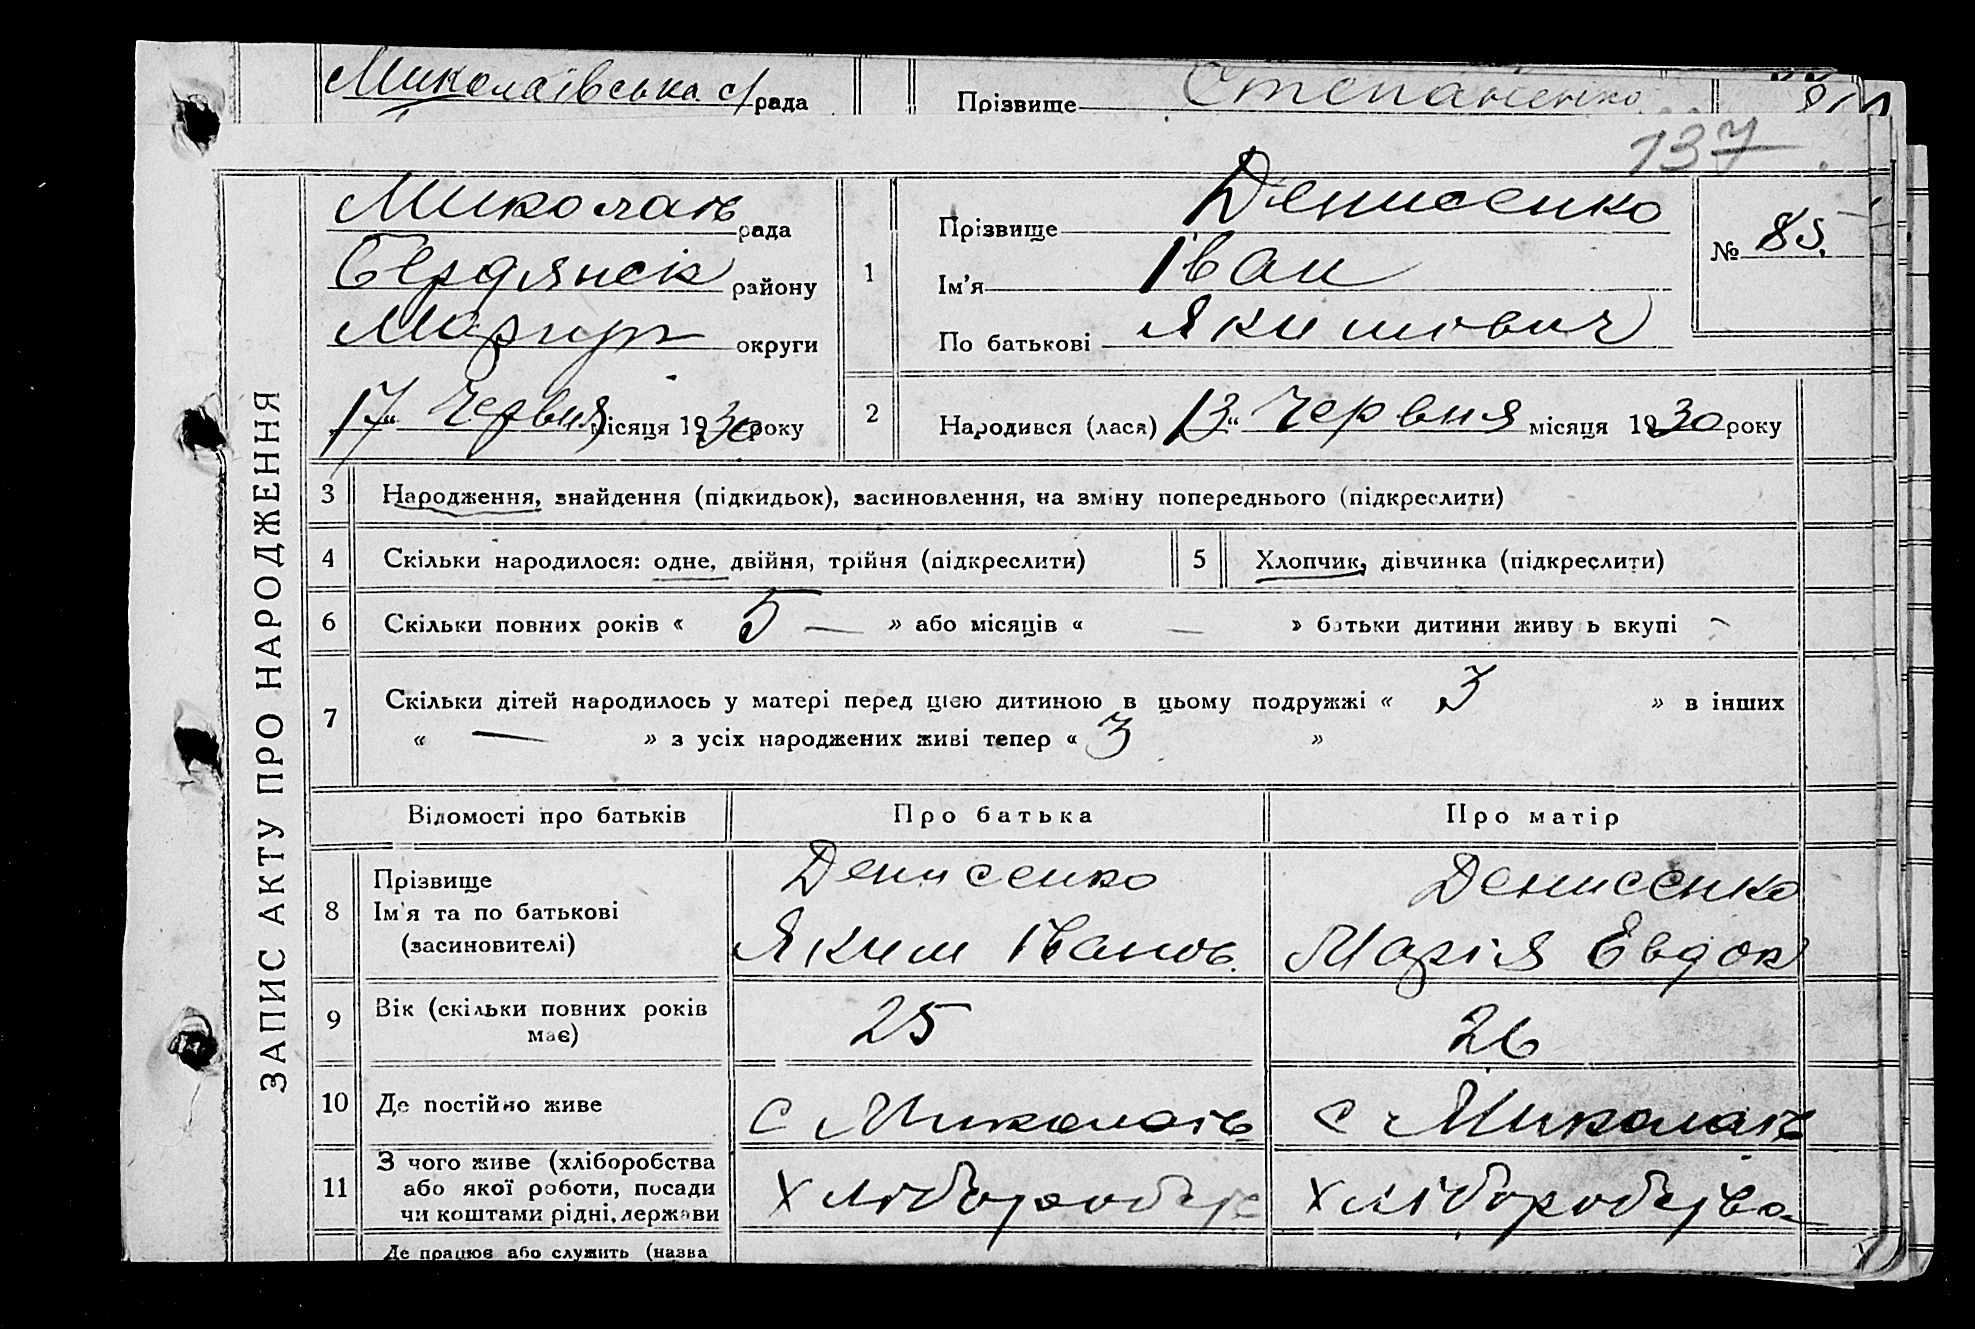 Миколаївська с/рада Прізвище Степаненко
137
ЗАПИС АКТУ ПРО НАРОДЖЕННЯ
Миколаїв рада
Бердянськ району
Маріуп округи
„17“ Червня місяця 1930 року
1 Прізвище Денисенко
Ім'я Іван
По батькові Якимович
№ 85.
2 Народився (лася) „13“ Червня місяця 1930 року
3 Народження, знайдення (підкидьок), засиновлення, на зміну попереднього (підкреслити)
4 Скільки народилося: одне, двійня, трійня (підкреслити) 5 Хлопчик, дівчинка (підкреслити)
6 Скільки повних років « 5 — » або місяців « — » батьки дитини живуть вкупі
7 Скільки дітей народилось у матері перед цією дитиною в цьому подружжі « 3 » в інших
« — » з усіх народжених живі тепер « 3 »
Відомості про батьків Про батька Про матір
8 Прізвище Денисенко Денисенко
Ім'я та по батькові Яким Іванов. Марія Евдок
(засиновителі)
9 Вік (скільки повних років має) 25 26
10 Де постійно живе с Миколаїв с Миколаїв
11 З чого живе (хліборобства
або якої роботи, посади Хліборобст Хліборобства
чи коштами рідні, держави
Де працює або служить (назва